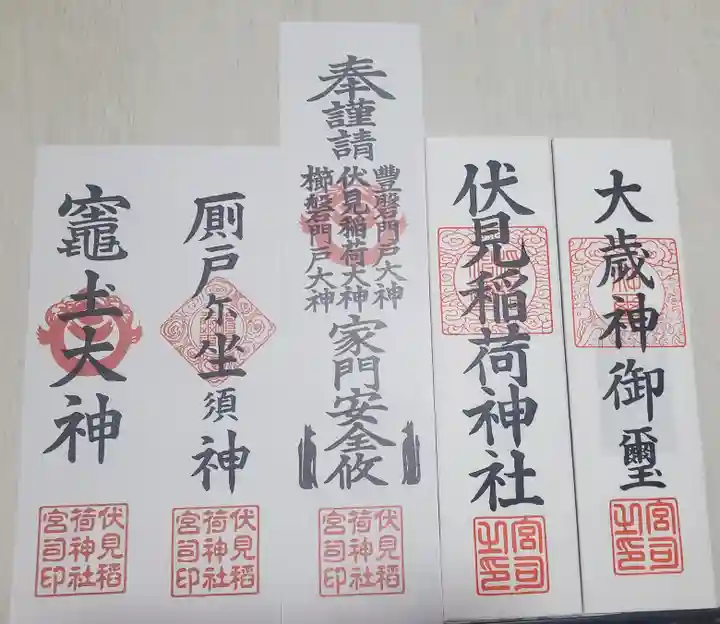 大歳神御璽
宮司
之印
伏見稲荷神社
宮司
之印
奉謹請
豐磐門戸大神
伏見稲荷大神
櫛磐門戸大神
家門安全攸
伏見稲
荷神社
宮司印
厠戸尓坐須神
伏見稲
荷神社
宮司印
竈土大神
伏見稲
荷神社
宮司印